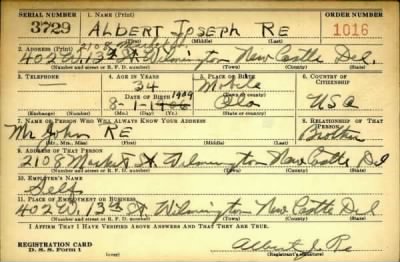 SERIAL NUMBER 1. NAME (Print) ORDER NUMBER
3729 ALBERT JOSEPH RE 1016
(First) (Middle) (Last)
2108 Market St
2. ADDRESS (Print)
402 W. 13th St Wilmington New Castle Del.
(Number and street or R. F. D. number) (Town) (County) (State)
3. TELEPHONE 4. AGE IN YEARS 5. PLACE OF BIRTH 6. COUNTRY OF CITIZENSHIP
— 34
DATE OF BIRTH 1909 (Town or county)
8-1-1906 USA
(Mo.) (Day) (Yr.) (State or country)
7. NAME OF PERSON WHO WILL ALWAYS KNOW YOUR ADDRESS 8. RELATIONSHIP OF THAT PERSON
Mr John RE Brother
(Mr., Mrs., Miss) (First) (Middle) (Last)
9. ADDRESS OF THAT PERSON
2108 Market St Wilmington New Castle Del
(Number and street or R. F. D. number) (Town) (County) (State)
10. EMPLOYER'S NAME
Self
11. PLACE OF EMPLOYMENT OR BUSINESS
402 W. 13th St Wilmington New Castle Del
(Number and street or R. F. D. number) (Town) (County) (State)
I AFFIRM THAT I HAVE VERIFIED ABOVE ANSWERS AND THAT THEY ARE TRUE.
REGISTRATION CARD Albert J. Re
D. S. S. Form 1 (Registrant's signature)